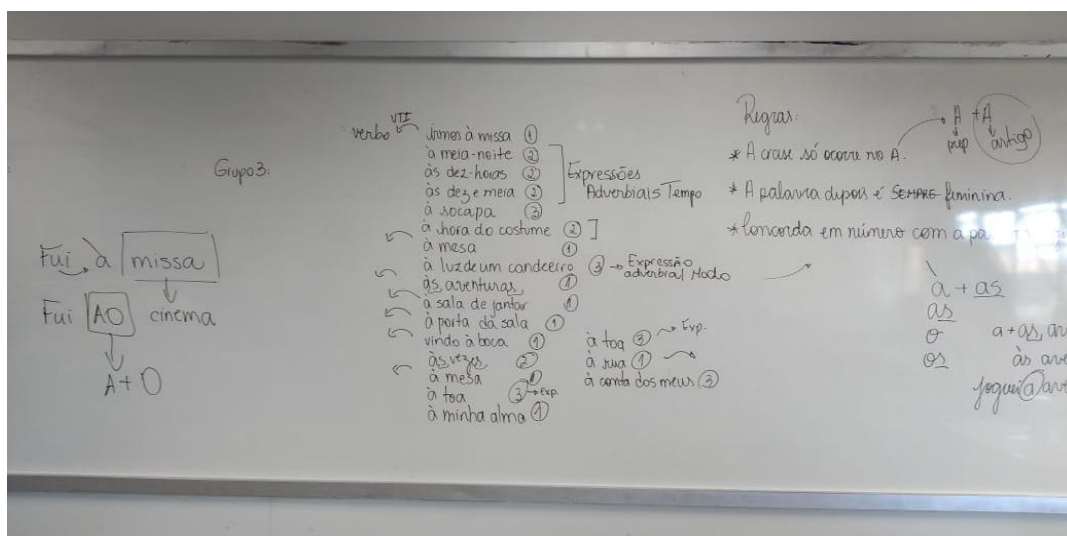 Grupo 3:
Fui à missa
Fui AO cinema
A + O
verbo VTI
irmos à missa ①
à meia-noite ②
às dez-horas ②
às dez e meia ②
à socapa ③
à hora do costume ②
à mesa ①
à luz de um candeeiro ③ → Expressão adverbial Modo
às aventuras ①
à sala de jantar ①
à porta da sala ①
vindo à boca ①
às vezes ②
à mesa ①
à toa ③ → Exp.
à minha alma ①
Expressões
Adverbiais Tempo
à toa ③ Exp.
à rua ①
à conta dos meus ③
Regras:
A + A
prep artigo
* A crase só ocorre no A.
* A palavra depois é SEMPRE feminina.
* Concorda em número com a
a + as
as
o
os
a + as,
às
joguei a